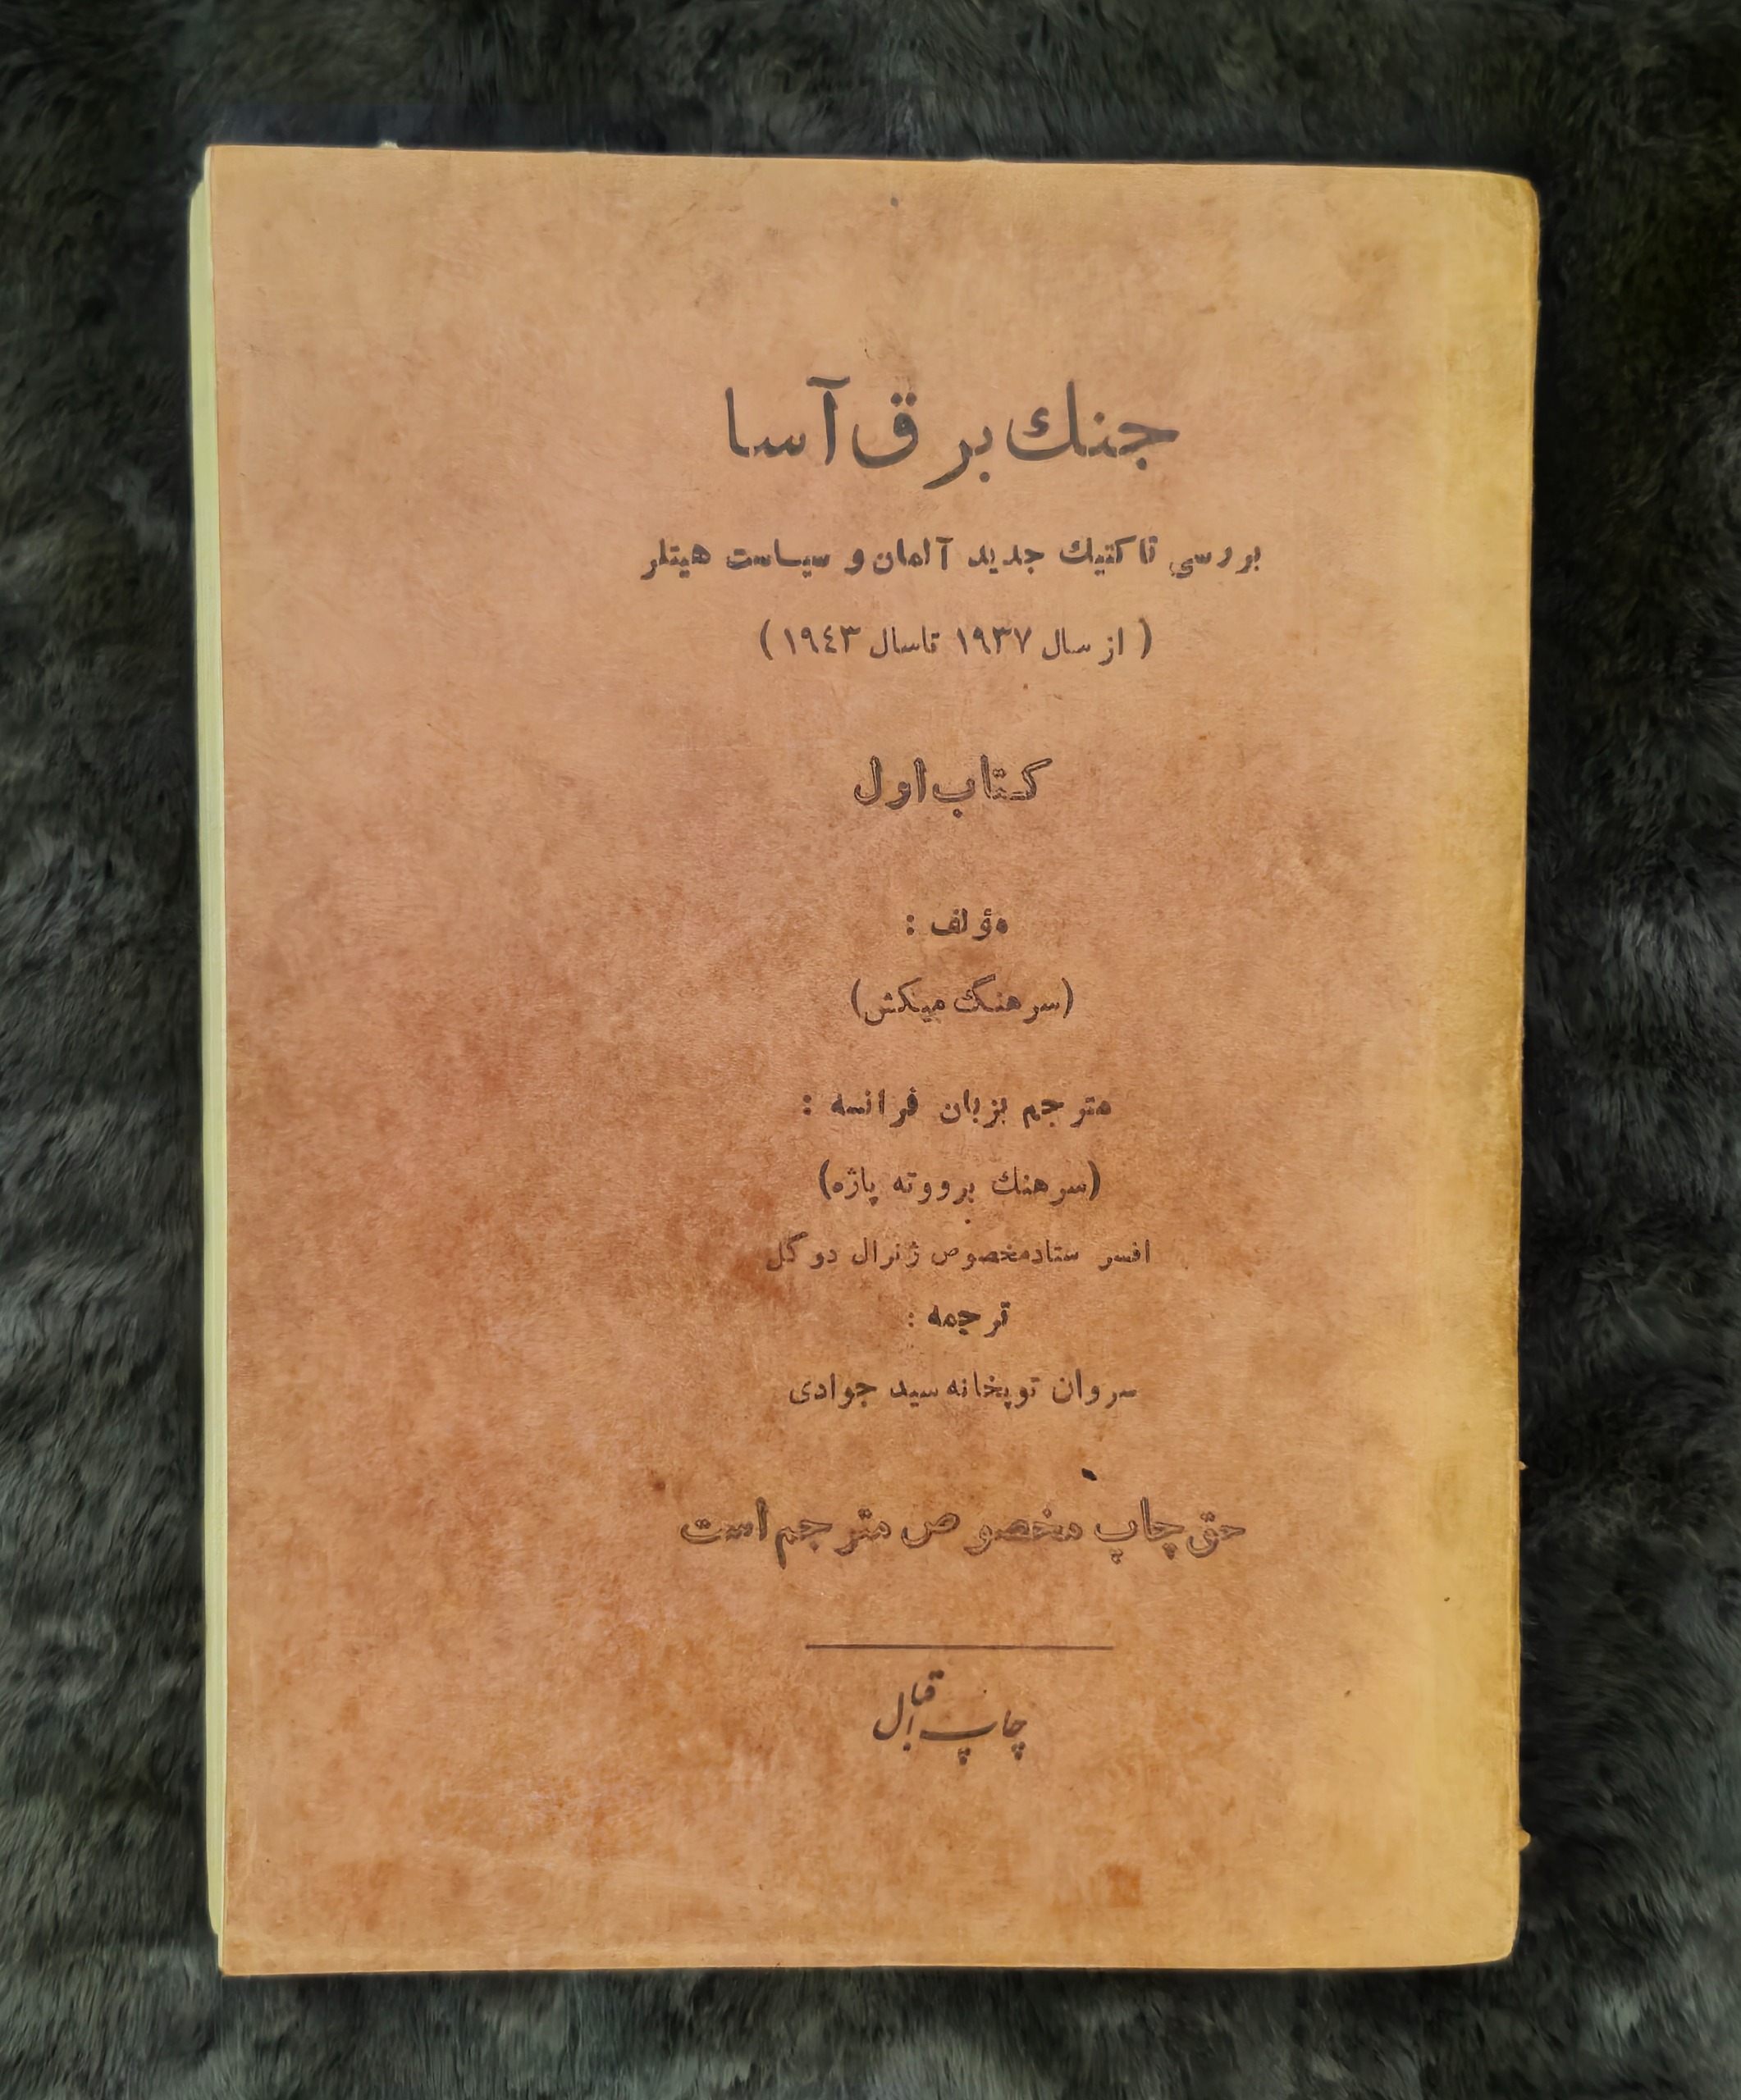 جنك برق آسا
بررسی تاکتيك جديد آلمان و سياست هيتلر
( از سال ١٩٣٧ تاسال ١٩٤٣ )
کتاب اول
مؤلف :
(سرهنگ ميکش)
مترجم بزبان فرانسه :
(سرهنك برووته پاژه)
افسر ستادمخصوص ژنرال دوگل
ترجمه :
سروان توپخانه سيد جوادی
حق چاپ مخصوص مترجم است
چاپ اقبال